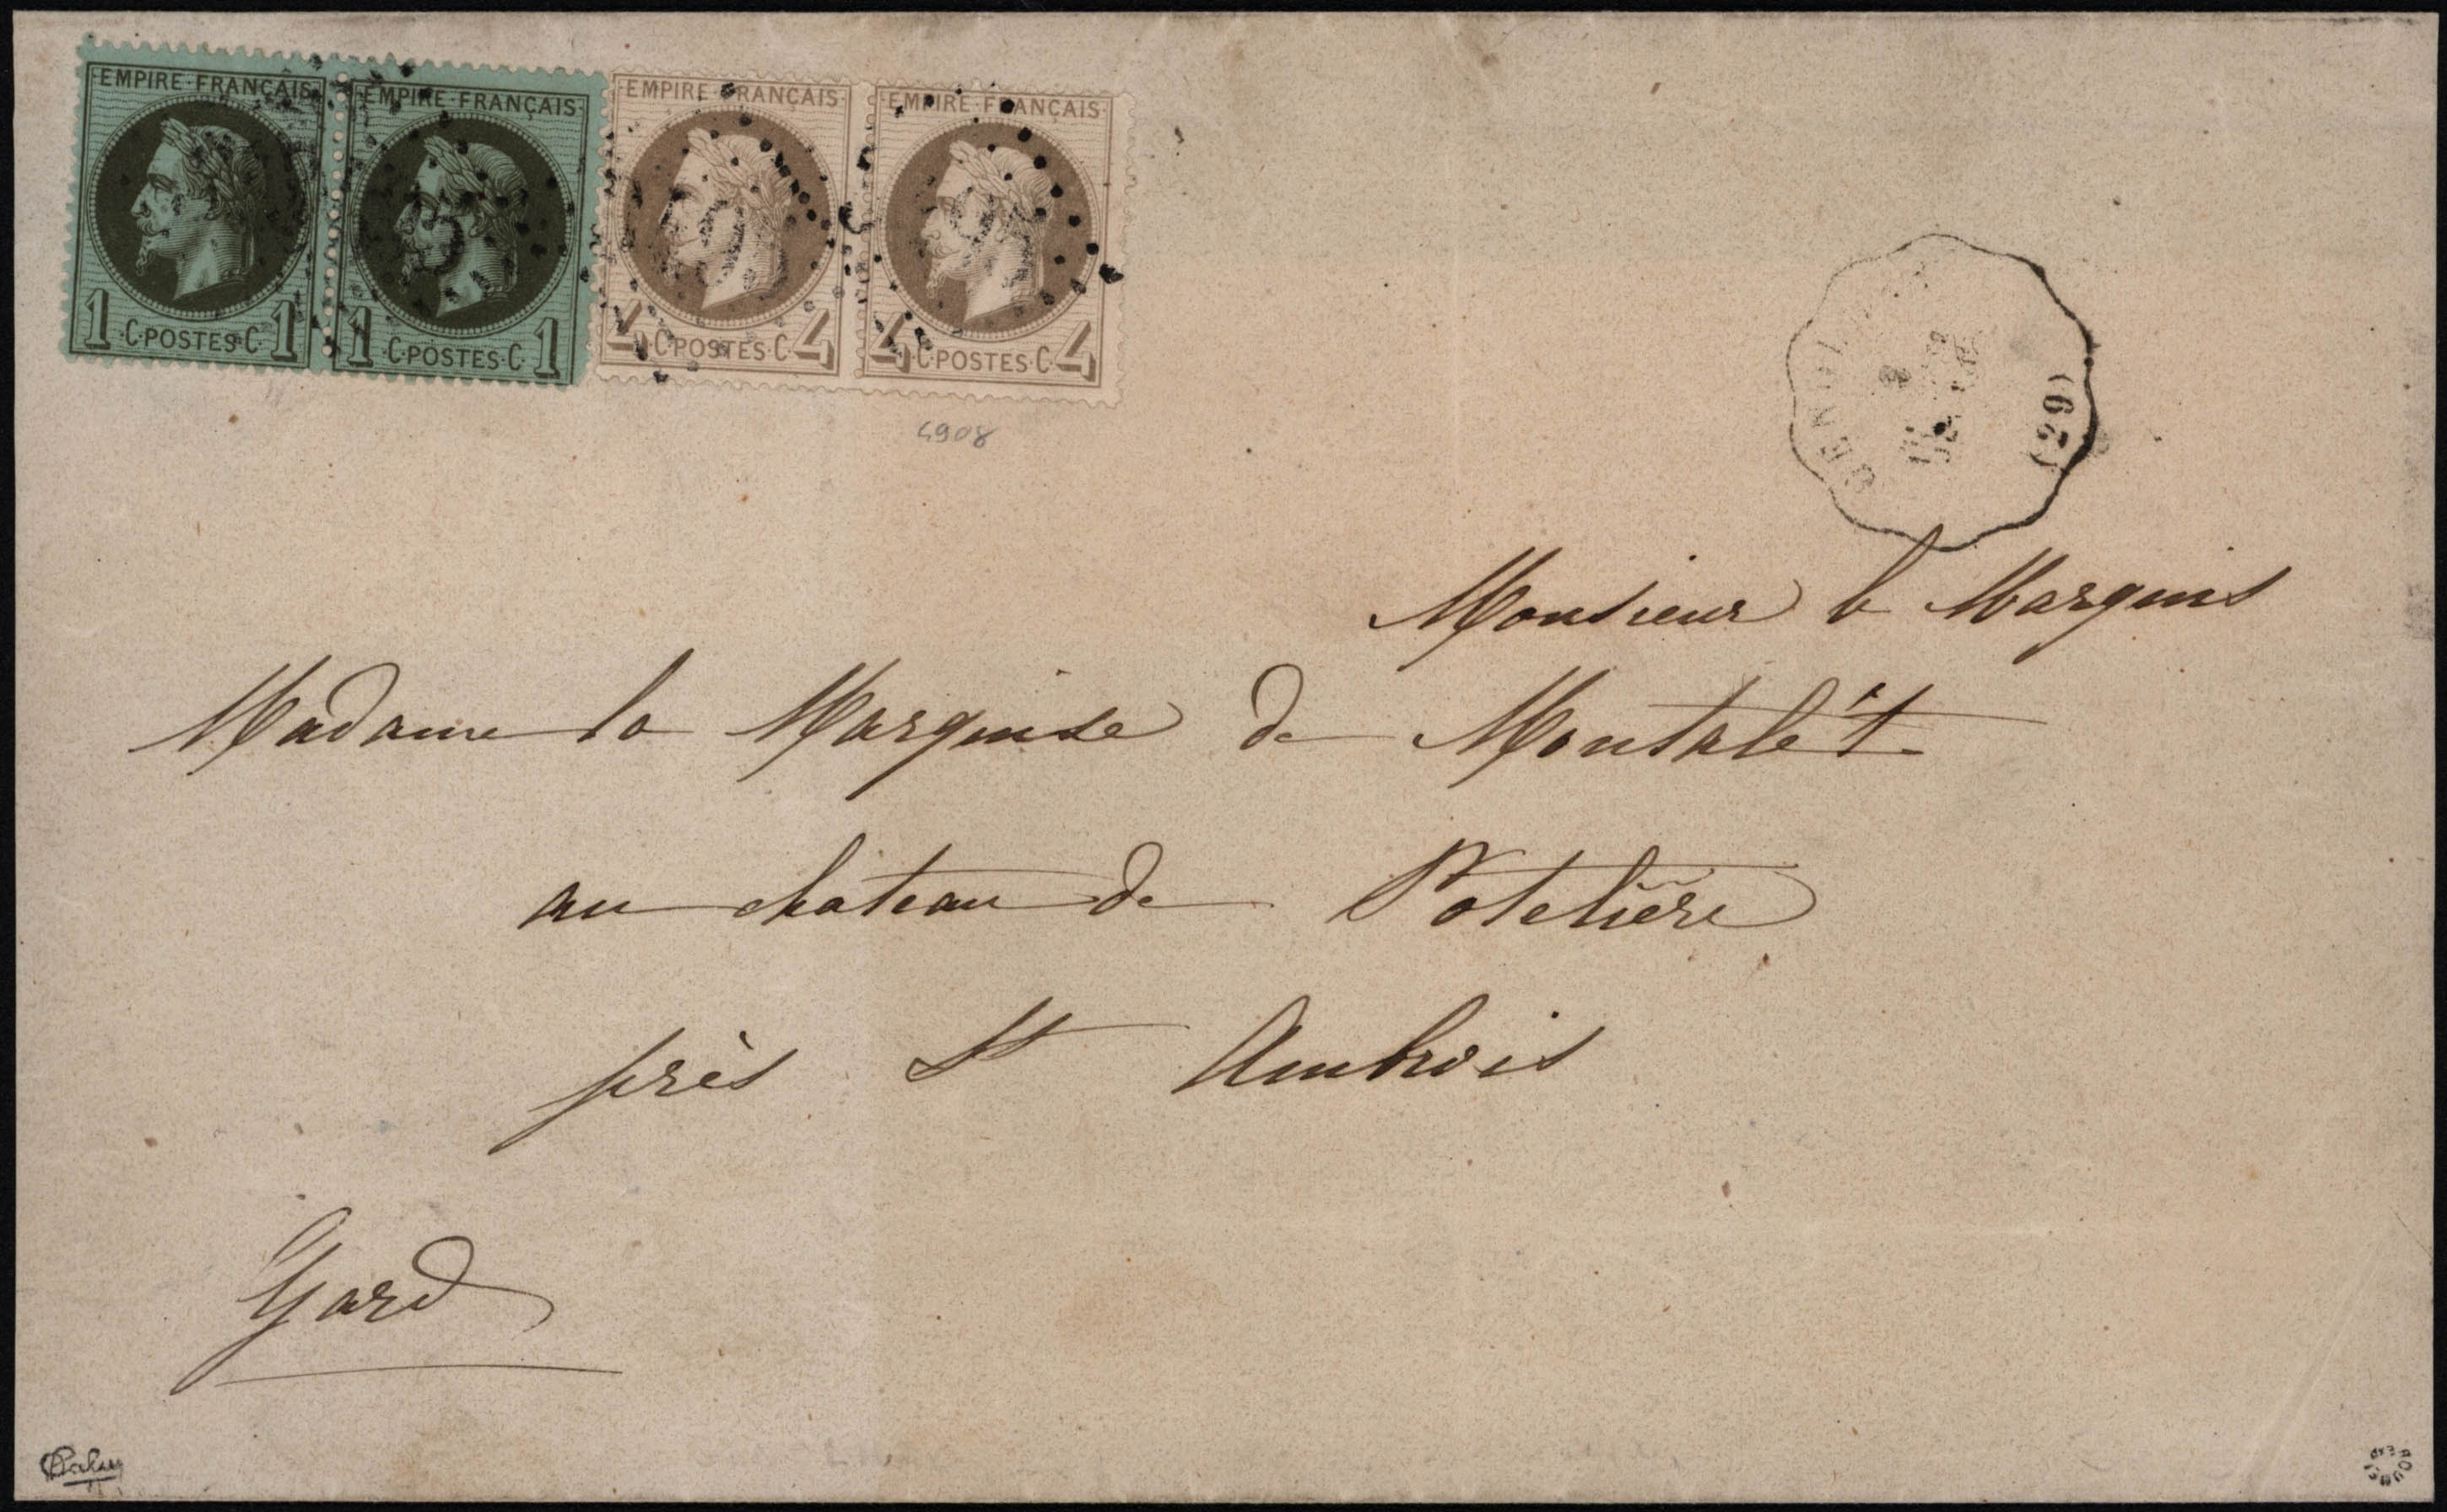 EMPIRE·FRANÇAIS
EMPIRE·FRANÇAIS
EMPIRE FRANÇAIS
EMPIRE·FRANÇAIS
1 ·C·POSTES·C· 1
1 ·C·POSTES·C· 1
4 C·POSTES·C 4
4 ·C·POSTES·C· 4
4908
(29)
Monsieur le Marquis
Madame la Marquise de Montalet
au château de Potelière
près St Ambroix
Gard
Calves
ROUMET